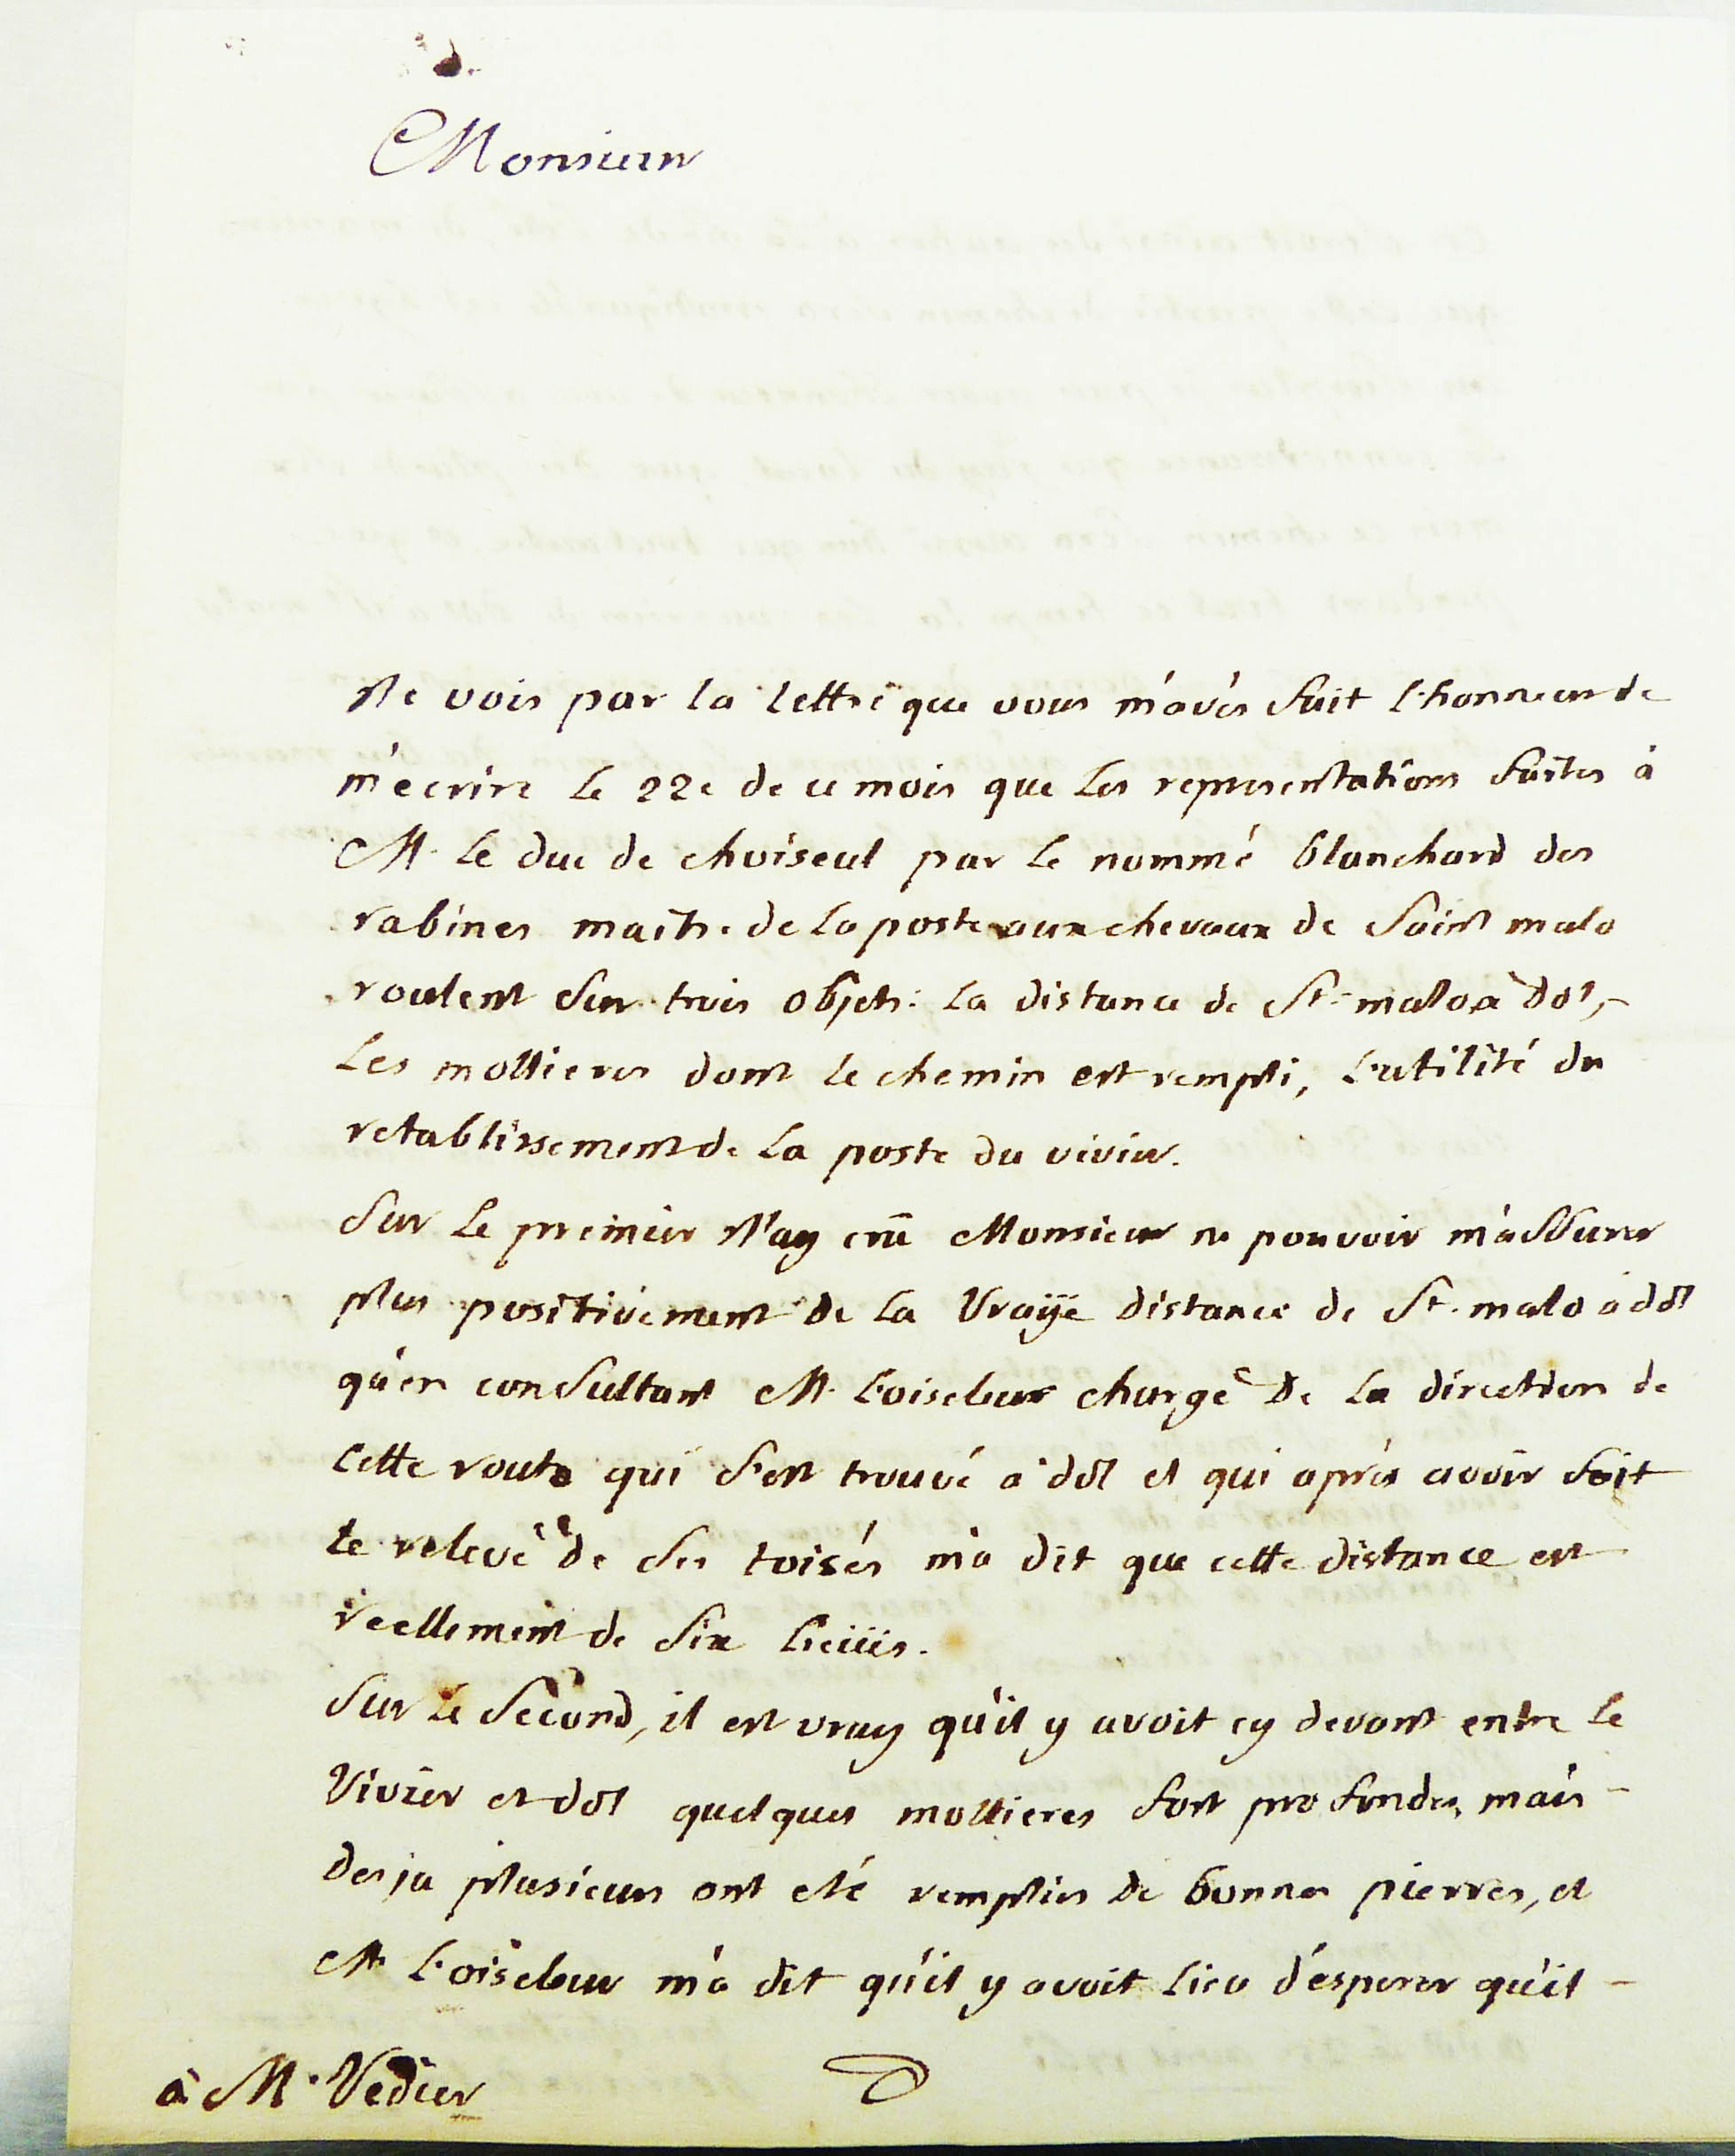 Monsieur
Je vois par la lettre que vous m'avés fait l'honneur de
m'ecrire le 22e de ce mois que les representations faites à
M. le duc de choiseul par le nommé blanchard des
rabines maitre de la poste aux chevaux de saint malo
roulent sur trois objets: la distance de St. malo à dol,
les mollieres dont le chemin est rempli, l'utilité du
retablissement de la poste du vivier.
sur le premier j'ay crû Monsieur ne pouvoir m'assurer
plus positivement de la vraÿe distance de St. malo à dol
qu'en consultant M. Loiseleur chargé de la direction de
cette route qui s'est trouvé à dol et qui après avoir fait
le relevé de ses toisés m'a dit que cette distance est
reellement de six lieües.
sur le second, il est vray qu'il y avoit cy devant entre le
vivier et dol quelques mollieres fort profondes, mais
desja plusieurs ont eté remplies de bonnes pierres, et
M. Loiseleur m'a dit qu'il y avoit lieu d'esperer qu'il
à M. Vedier